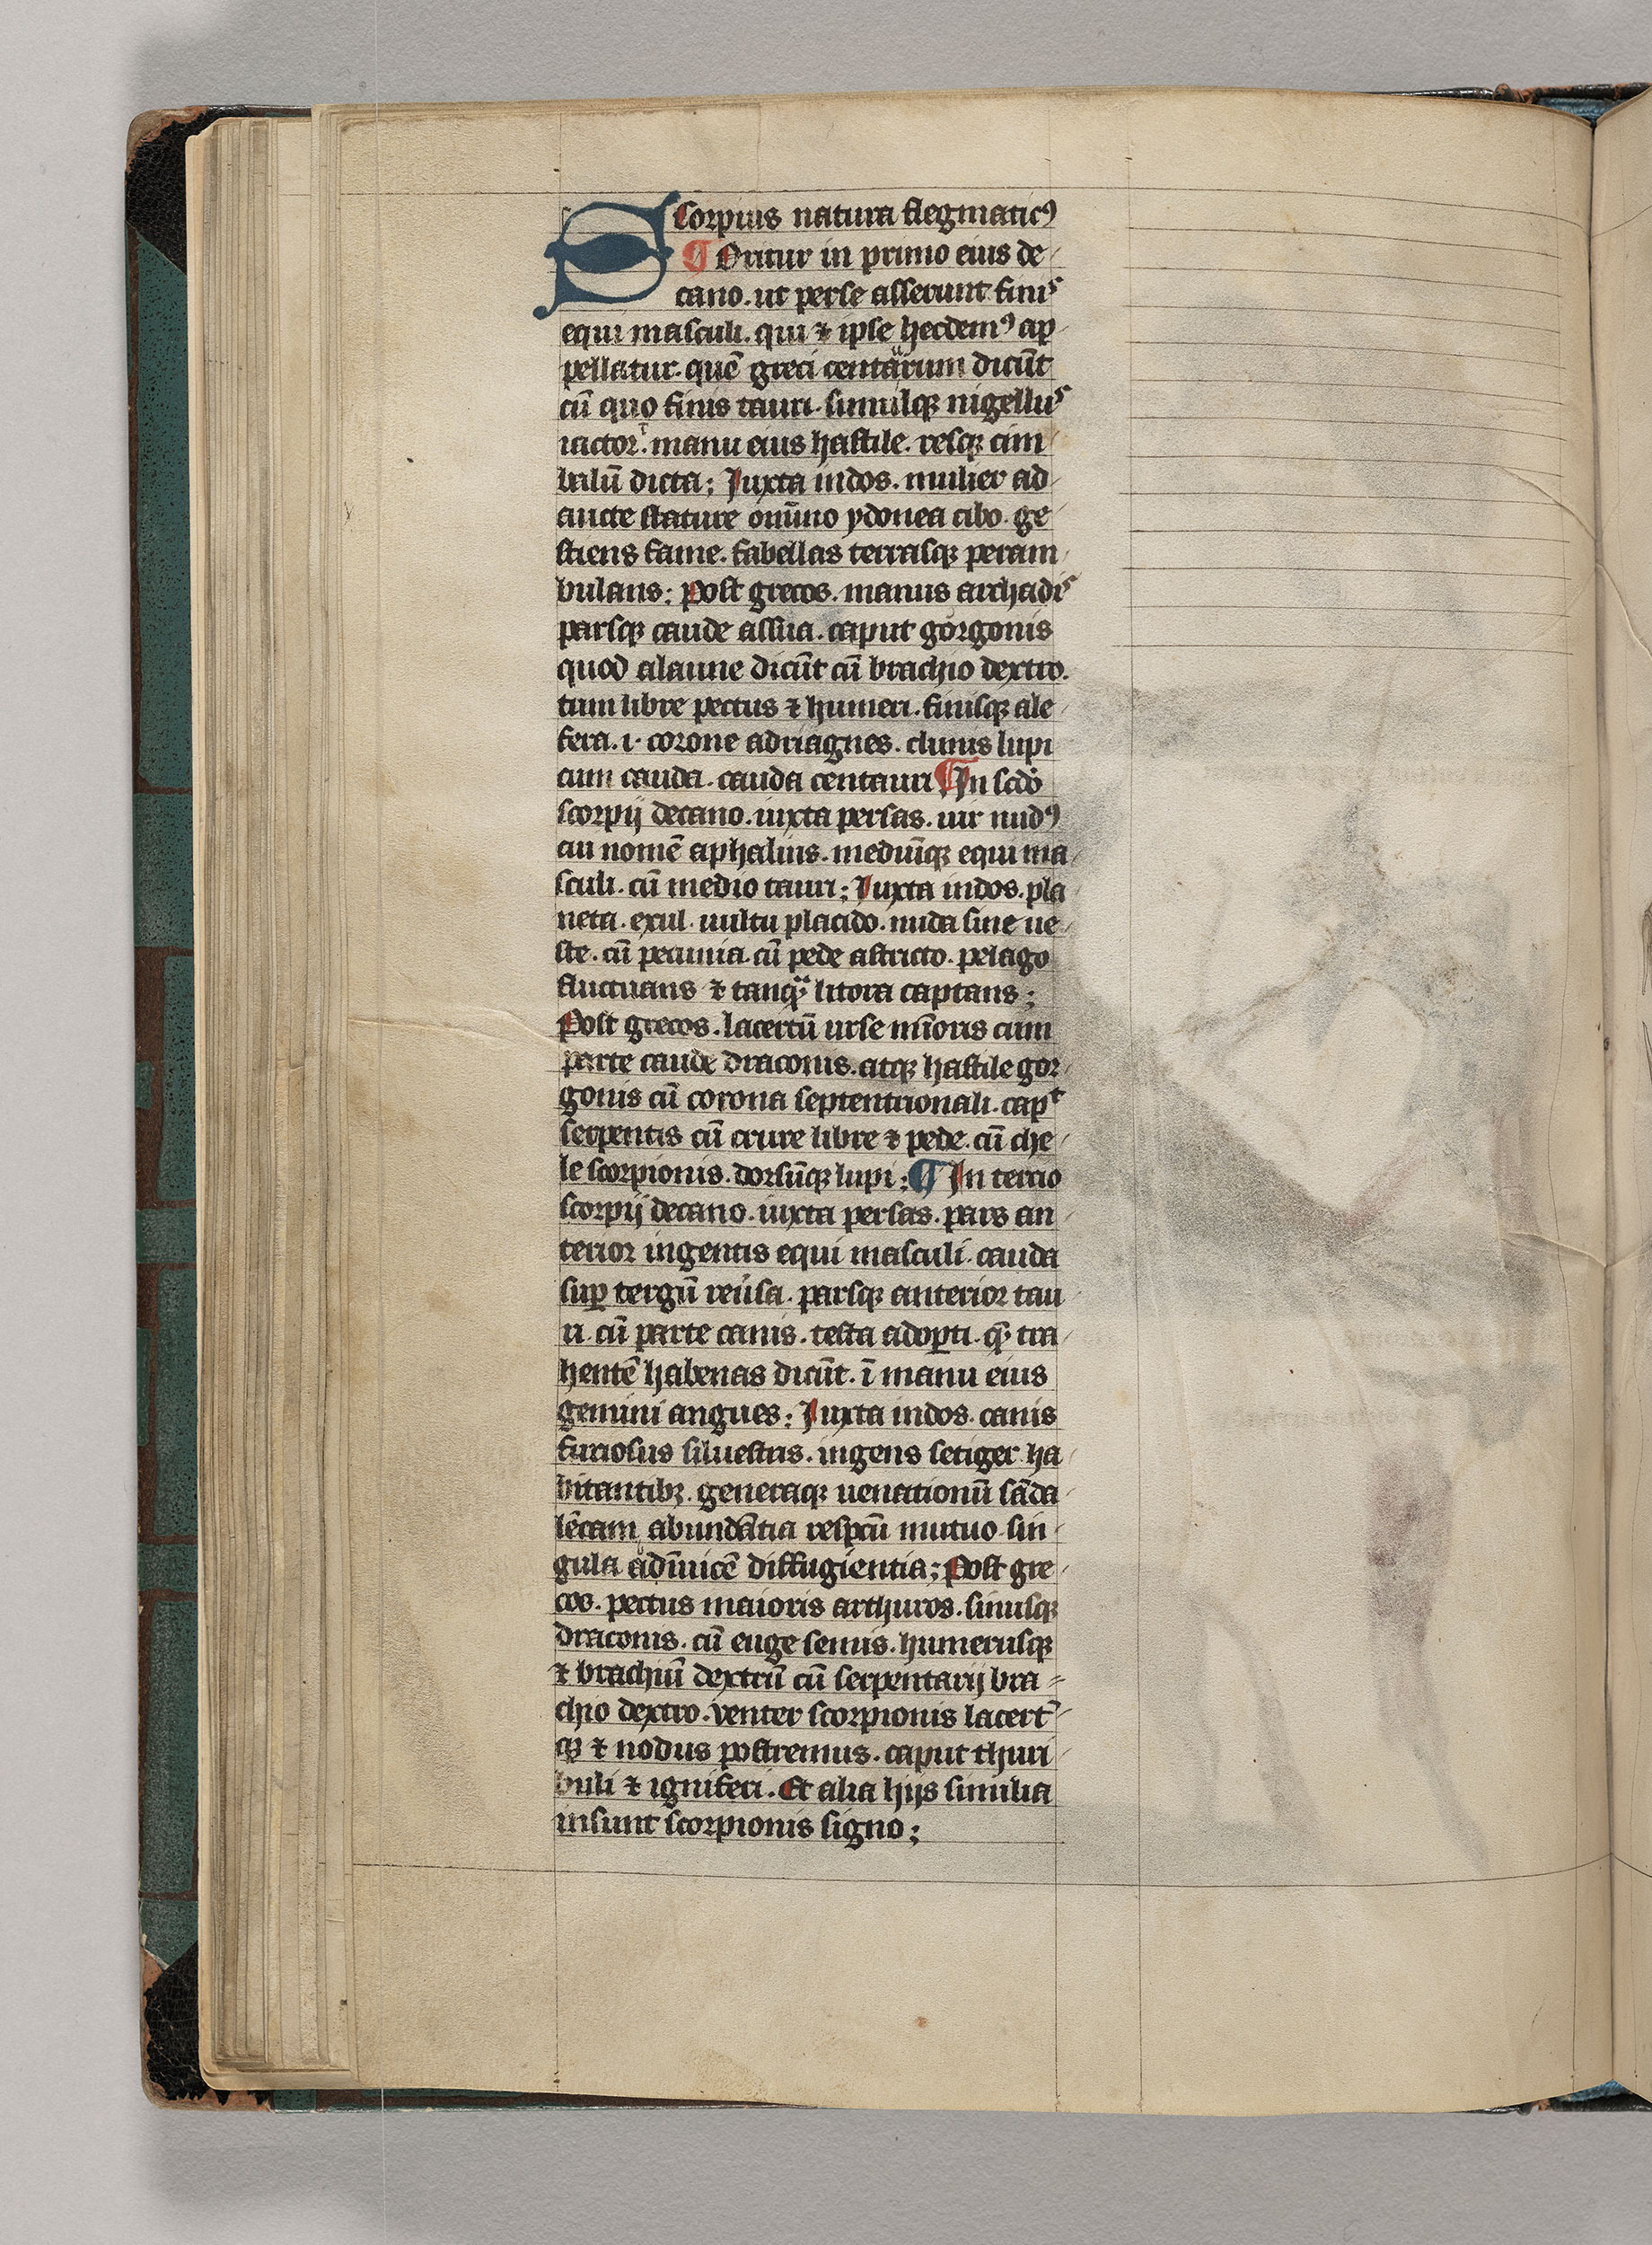 Scorpius natura flegmaticꝰ
¶ Oritur in primo eius de
cano. ut perse asserunt finis
equi masculi. qui ⁊ ipse hecdemꝰ ap
pellatur. quē greci centaurum dicūt
cū quo finis tauri. simulqꝫ nigellus
manu eius hastile. resqꝫ cim
balū dicta; Juxta indos. mulier ad
aucte stature om̄ino ydonea cibo. ge
stiens fame. fabellas terrasqꝫ peram
bulans; Post grecos. manus archadis
parsqꝫ caude assua. caput gorgonis
quod alaune dicūt cū brachio dextro.
tum libre pectus ⁊ humeri. finisqꝫ ale
fera. i. corone adriagnes. clunis lupi
cum cauda. cauda centauri ¶ In scdo
scorpij decano. iuxta persas. uir nudꝰ
cui nomē aphalius. mediūqꝫ equi ma
sculi. cū medio tauri; Juxta indos. pla
neta. exul. uultu placido. nuda sine ue
ste. cū pecunia. cū pede astricto. pelago
fluctuans ⁊ tanqᵃ litora captans;
Post grecos. lacertū urse mīoris cum
parte caude draconis. atqꝫ hastile gor
gonis cū corona septentrionali. capᵗ
serpentis cū crure libre ⁊ pede. cū che
le scorpionis. dorsūqꝫ lupi; ¶ In tercio
scorpij decano. iuxta persas. pars an
terior ingentis equi masculi. cauda
suꝑ tergū reūsa. parsqꝫ anterior tau
ri. cū parte canis. testa adoꝑti. qᷓ tra
hentē habenas dicūt. ī manu eius
gemini angues; Juxta indos. canis
furiosus siluestris. ingens setiger ha
bitantibꝫ. generaqꝫ uenationū sāda
lēcam abundātia respcū mutuo. sin
gula adīuicē diffugientia; Post gre
cos. pectus maioris arthuros. sinusqꝫ
draconis. cū euge senus. humerusqꝫ
⁊ brachiū dextrū cū serpentarij bra
chio dextro. venter scorpionis lacert᷑
qꝫ ⁊ nodus postremus. caput thuri
buli ⁊ igniferi. Et alia hijs similia
insunt scorpionis signo;